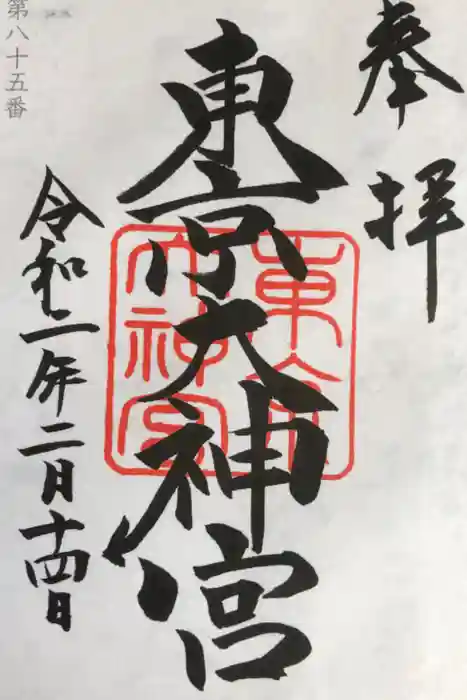 奉拝
東京大神宮
東京
大神宮
令和二年二月十四日
第八十五番